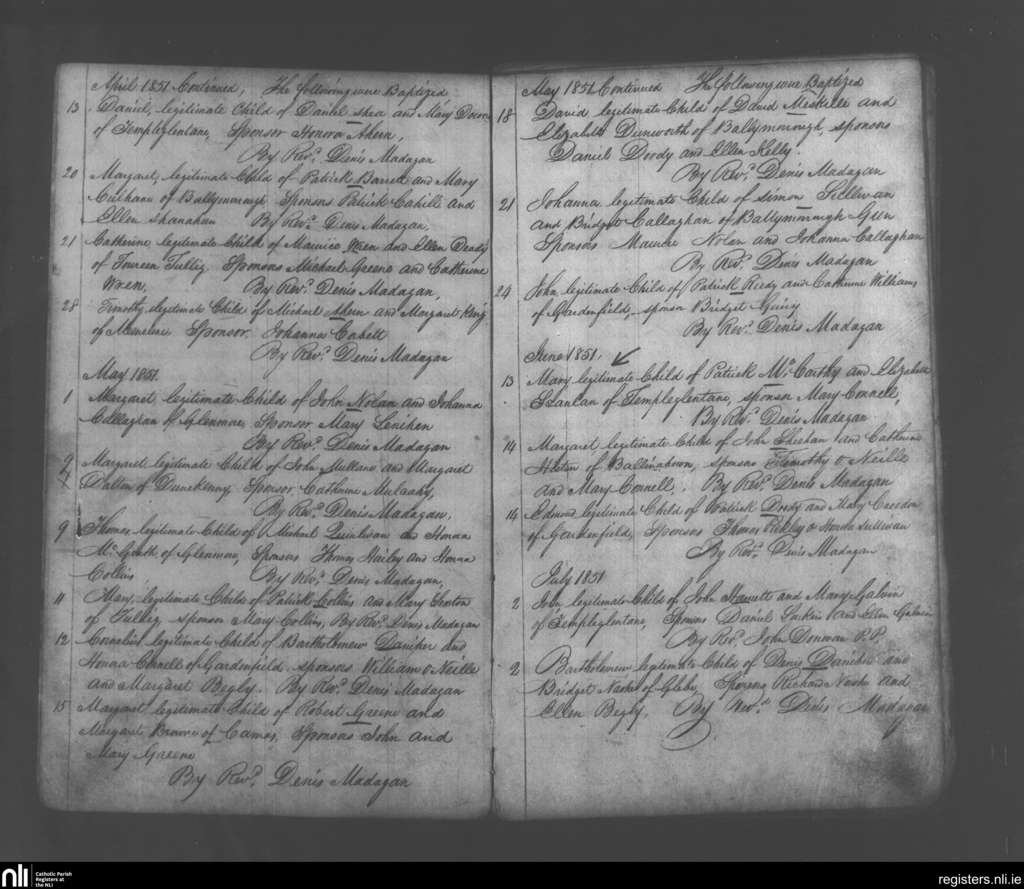 April 1851 Continued, The following were Baptized
13 Daniel, legitimate Child of Daniel Shea and Mary
of Templeglentane, Sponsor Honora Ahern,
By Revd. Denis Madagan
20 Margaret, legitimate Child of Patrick Barrett and Mary
Culhane of Ballymorrough Sponsors Patrick Cahill and
Ellen Shanahan By Revd. Denis Madagan,
21 Catherine legitimate Child of Maurice Wren and Ellen
of Tureen Tullig. Sponsors Michael Greene and Catherine
Wren, By Revd. Denis Madagan,
28 Timothy, legitimate Child of Michael Ahern and Margaret King
of Sponsor. Johanna Cahill
By Revd. Denis Madagan
May 1851.
1 Margaret legitimate Child of John Nolan and Johanna
Callaghan of Glenmore, Sponsor Mary Lenihen
By Revd. Denis Madagan
Margaret legitimate Child of John Mullane and Margaret
Dalton of Dunekenny, Sponsor Catherine Mulcahy,
By Revd. Denis Madagan,
9 Thomas legitimate Child of Michael Quinlivan and Honora
McGrath of Glenmore, Sponsors Thomas and Honora
Collins By Revd. Denis Madagan,
11 Mary, legitimate Child of Patrick Collins and Mary
of Tullig sponsor Mary Collins, By Revd. Denis Madagan
12 Cornelius legitimate Child of Bartholomew Daniher and
Honora Connell of Gardenfield. sponsors William O Neille
and Margaret Begly. By Revd. Denis Madagan
15 Margaret legitimate Child of Robert Greene and
Margaret Browne of Camas, Sponsors John and
Mary Greene
By Revd. Denis Madagan
May 1851 Continued The following were Baptized
18 David legitimate Child of David Meskelle and
Elizabeth Dunworth of Ballymorrough, sponsors
Daniel Doody and Ellen Kelly.
By Revd. Denis Madagan
21 Johanna legitimate Child of Simon Sullivan
and Bridget Callaghan of Ballymorrough Gun
Sponsors Maurice Nolan and Johanna Callaghan
By Revd. Denis Madagan
24 John legitimate Child of Patrick Reidy and Catherine Williams
of Gardenfield, sponsor Bridget Guiry
By Revd. Denis Madagan
June 1851.
13 Mary legitimate Child of Patrick McCarthy and Elizabeth
Scanlan of Templeglentane, sponsor Mary Connell,
By Revd. Denis Madagan
14 Margaret legitimate Child of John Sheehan and Catherine
of Ballinabown, sponsors Timothy O Neille
and Mary Connell,. By Revd. Denis Madagan
14 Edmond legitimate Child of Patrick Doody and Mary Creedon
of Gardenfield, Sponsors Thomas and Honora Sullivan
By Revd. Denis Madagan
July 1851
2 John legitimate Child of John and Mary Galvin
of Templeglentane, Sponsors Daniel and Ellen Galvin
By Revd. John Donovan P.P.
2 Bartholomew legitimate Child of Denis Daniher and
Bridget Nashe of Glebe, Sponsors Richard Nashe and
Ellen Begly, By Revd. Denis Madagan
nli Catholic Parish
Registers at
the NLI
registers.nli.ie